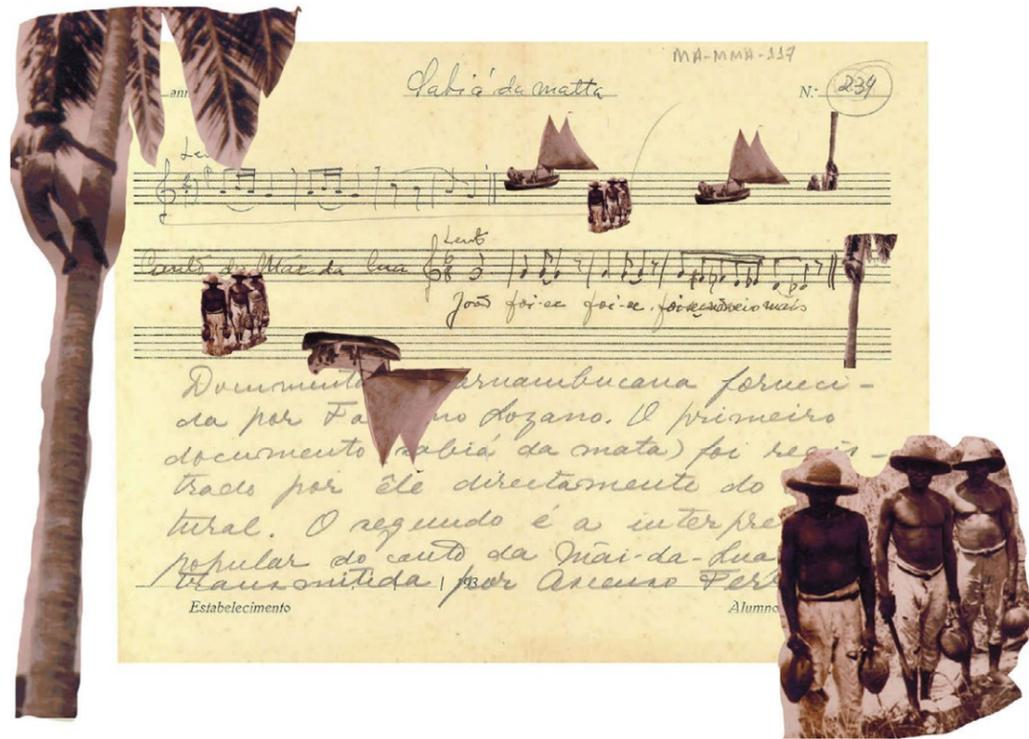 MA-MMA-117
ann
Sabiá da matta
N.º 234
Lento
Canto da Mãe da lua
Lento
João foi-se foi-se. foi-se mais
Documento arnambucana forneci-
da por Fa no Lozano. O primeiro
documento sabiá da mata) foi regis-
trado por êle directamente do
tural. O segundo é a interpre
popular do canto da Mãi-da-Lua
transmitida por Ascenso Fer
193
Estabelecimento
Alumno